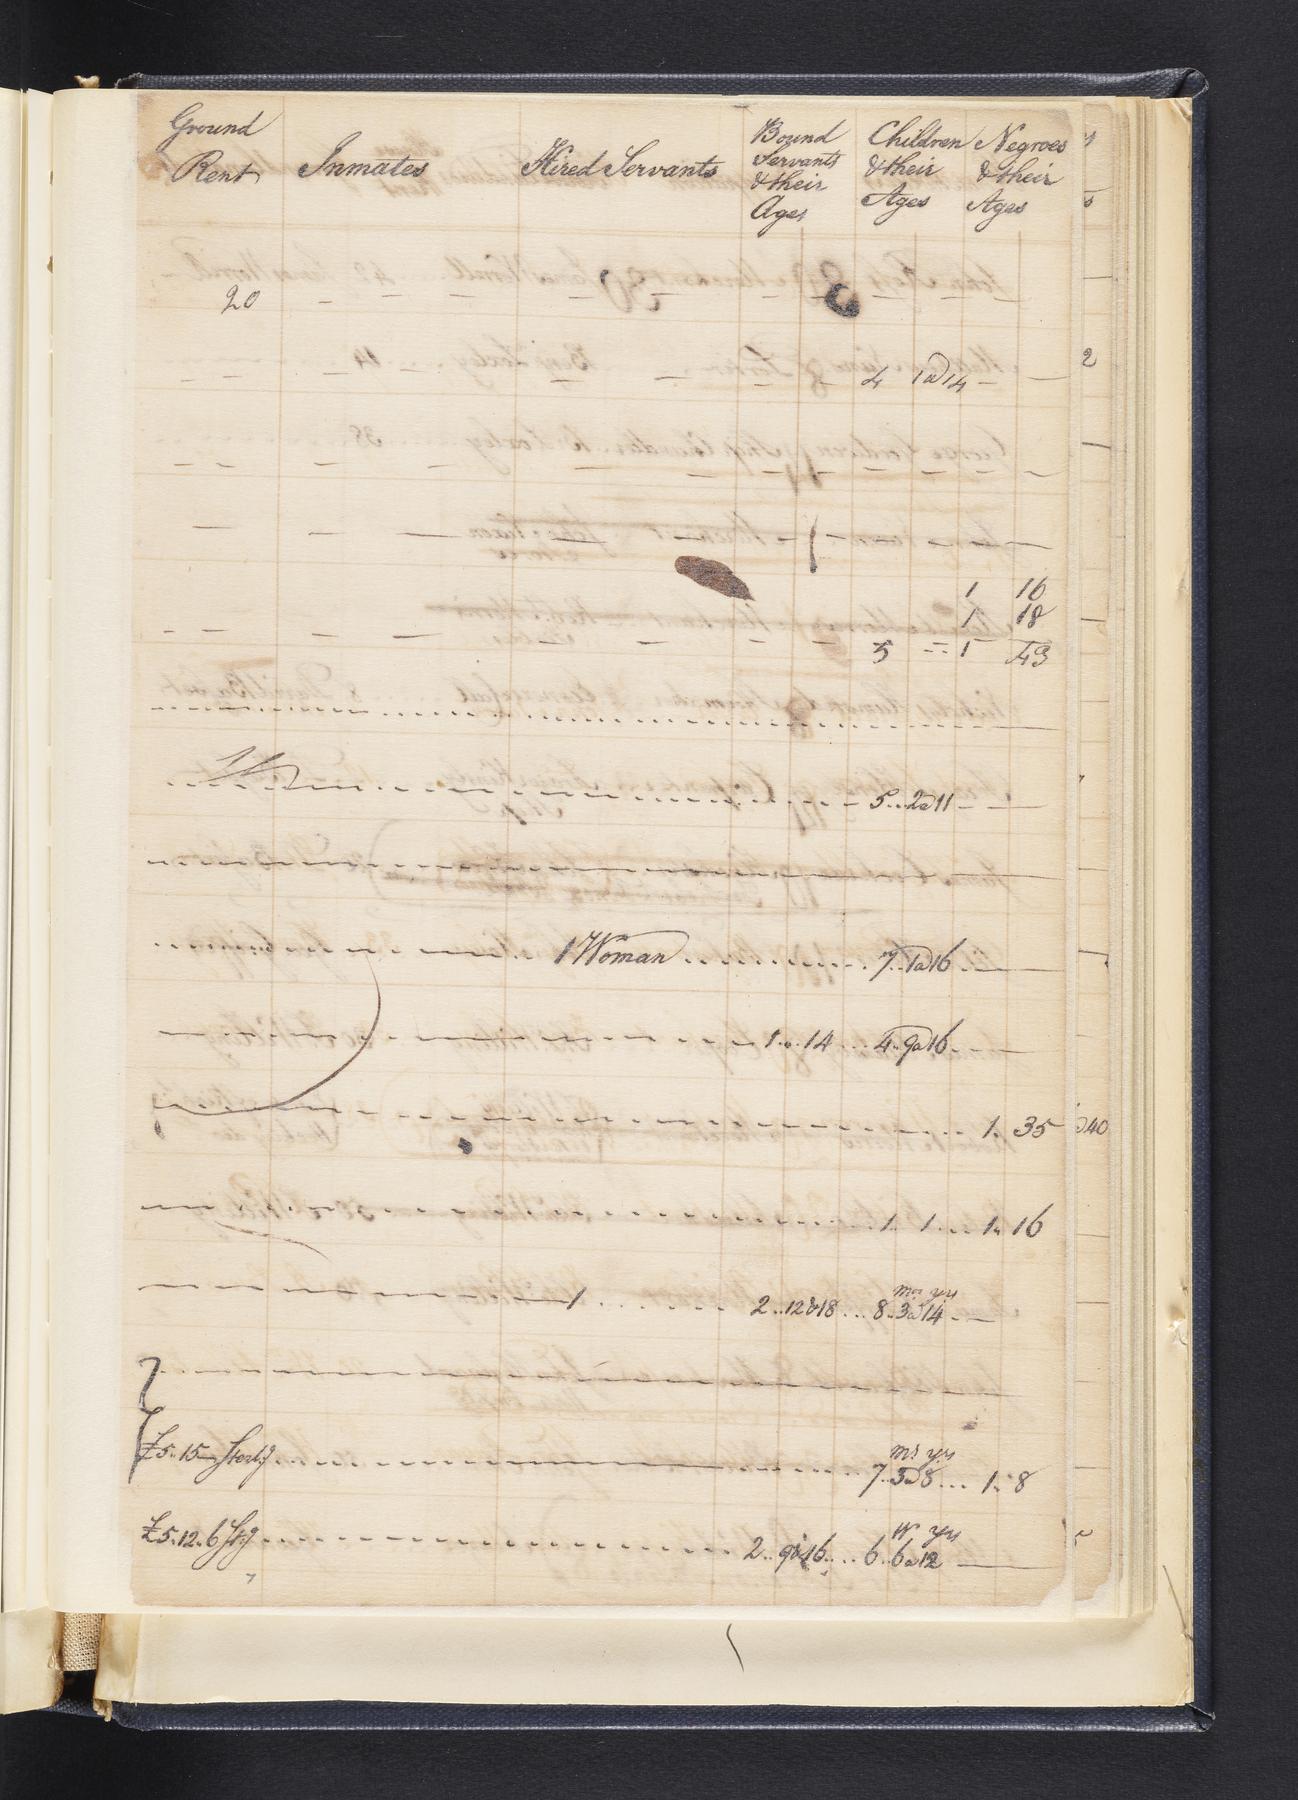 Ground Rent Inmates Hired Servants Bound Servants & their Ages Children & their Ages Negroes & their Ages
20 - - - - - - - -
- - - - - - 4 1 a 14 - -
- - - - - - - -
- - - - - - - -
1 16
1 18
- - - - - - 5 - - 1 43
5 .. 2 a 11 - -
1 Woman 7 .. 1 a 16 -
1 .. 14 ... 4 .. 9 a 16 -
1 .. 35
1 .. 1 ... 1 .. 16
mos yrs
1 ...... 2 .. 12 & 18 ... 8 .. 3 a 14 - -
ms yrs
£5 .. 15 Sterlg 7 .. 3 a 8 ... 1 .. 8
w yrs
£5 .. 12 .. 6 Stg 2 .. 9 & 16 ... 6 .. 6 a 12 -
2
40